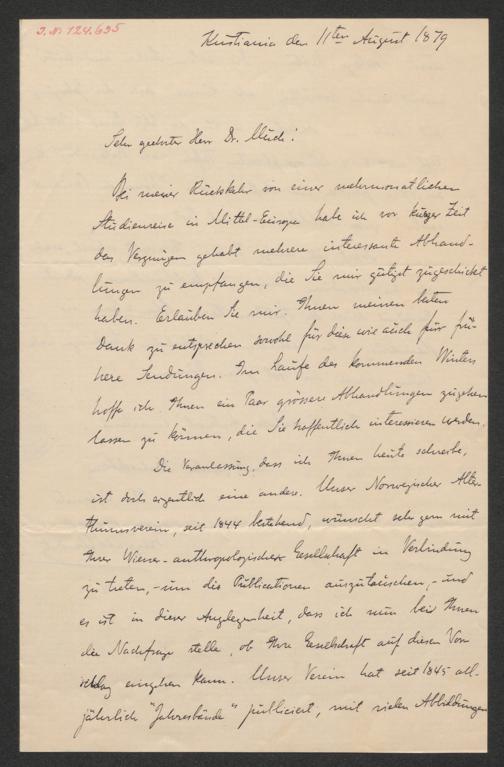 J.N. 124.635
Kristiania den 11ten August 1879
Sehr geehrter Herr Dr. Much!
Bei meiner Rückkehr von einer mehrmonatlichen
Studienreise in Mittel-Europa habe ich vor kurzer Zeit
das Vergnügen gehabt mehrere interessante Abhand-
lungen zu empfangen, die Sie mir gütigst zugeschickt
haben. Erlauben Sie mir, Ihnen meinen besten
Dank zu entsprechen sowohl für diese wie auch für frü-
here Sendungen. Im Laufe des kommenden Winters
hoffe ich Ihnen ein Paar grössere Abhandlungen zugehen
lassen zu können, die Sie hoffentlich interessieren werden.
Die Veranlassung, dass ich Ihnen heute schreibe,
ist doch eigentlich eine andere. Unser Norwegischer Alter-
thumsverein, seit 1844 bestehend, wünscht sehr gern mit
Ihrer Wiener-anthropologischen Gesellschaft in Verbindung
zu treten, - um die Publicationen auszutauschen, - und
es ist in dieser Anglegenheit, dass ich nun bei Ihnen
die Nachfrage stelle, ob Ihre Gesellschaft auf diesen Vor
schlag eingehen kann. Unser Verein hat seit 1845 all-
jährlich "Jahresbände" publiciert, mit vielen Abbildungen